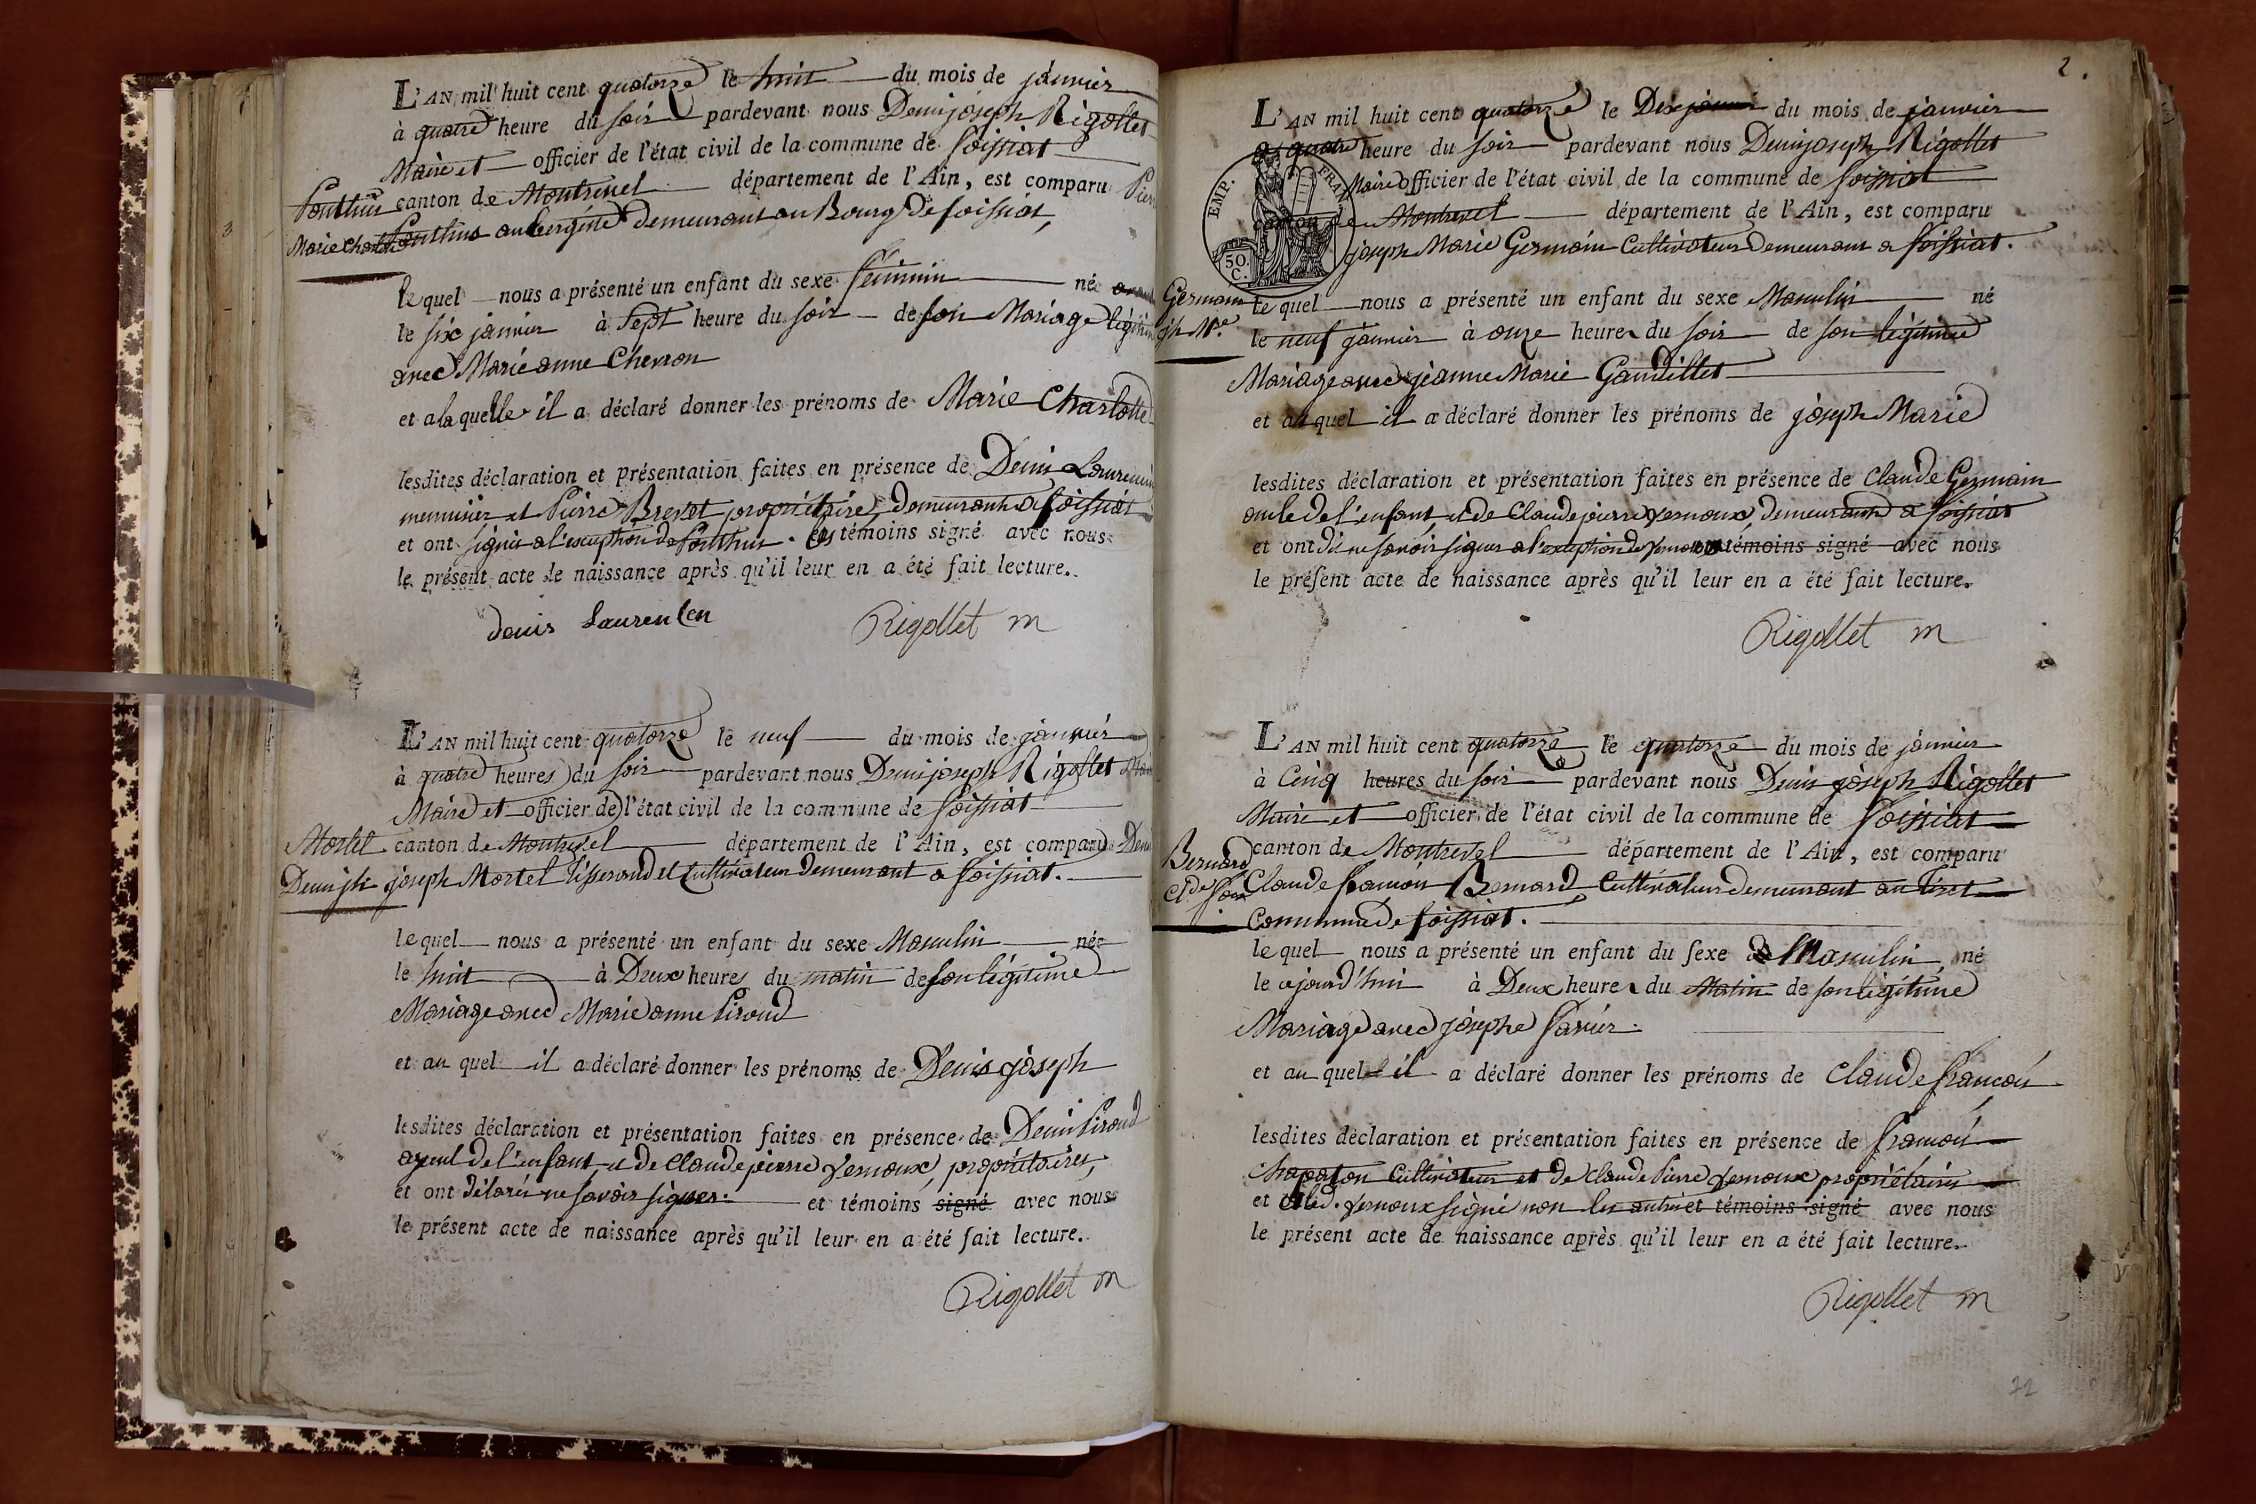 L'AN mil huit cent quatorze le huit du mois de janvier
à quatre heure du soir pardevant nous Denis joseph Rigollet
Maire et officier de l'état civil de la commune de foissiat
canton de Montrevel département de l'Ain, est comparu Pierre
Ponthus aubergiste demeurant au Bourg de foissiat,
Ponthus
Marie Charlotte
lequel nous a présenté un enfant du sexe féminin née
le six janvier à Sept heure du soir de son Mariage légitime
avec Marie anne Chevron
et a la quelle il a déclaré donner les prénoms de Marie Charlotte
lesdites déclaration et présentation faites en présence de Denis Laurencin
menuisier et Pierre Brevet propriétaire, demeurants a foissiat
et ont signés a l'exception de Ponthus. les témoins signé avec nous
le présent acte de naissance après qu'il leur en a été fait lecture.
denis Laurencen Rigollet m
L'AN mil huit cent quatorze le neuf du mois de janvier
à quatre heures du soir pardevant nous Denis joseph Rigollet
Maire et officier de l'état civil de la commune de foissiat
canton de Montrevel département de l'Ain, est comparu Denis
joseph Mortel tisserand et Cultivateur demeurant a foissiat.
Mortel
Denis jh
lequel nous a présenté un enfant du sexe Masculin née
le huit à Deux heures du matin de son légitime
Mariage avec Marie anne Piroud
et au quel il a déclaré donner les prénoms de Denis joseph
lesdites déclaration et présentation faites en présence de Denis Piroud
ayeul de l'enfant, et de Claude pierre Vernoux, propriétaires,
et ont déclarés ne savoir signer. et témoins signé avec nous
le présent acte de naissance après qu'il leur en a été fait lecture.
Rigollet m
2.
L'AN mil huit cent quatorze le Dix janvier du mois de janvier
a quatre heure du soir pardevant nous Denis joseph Rigollet
Maire officier de l'état civil de la commune de foissiat
canton de Montrevel département de l'Ain, est comparu
joseph Marie Germain Cultivateur demeurant a foissiat.
EMP. FRAN
50.
C.
Germain
jh Mie
lequel nous a présenté un enfant du sexe Masculin né
le neuf janvier à onze heures du soir de son légitime
Mariage avec jeanne Marie Gaudillet
et au quel il a déclaré donner les prénoms de joseph Marie
lesdites déclaration et présentation faites en présence de Claude Germain
oncle de l'enfant, et de Claude pierre Vernoux, demeurant a foissiat
et ont dit ne savoir signer a l'exception de Vernoux témoins signé avec nous
le présent acte de naissance après qu'il leur en a été fait lecture.
Rigollet m
L'AN mil huit cent quatorze le quatorze du mois de janvier
à Cinq heures du soir pardevant nous Denis joseph Rigollet
Maire et officier de l'état civil de la commune de foissiat
canton de Montrevel département de l'Ain, est comparu
Claude françois Bernard Cultivateur demeurant au
Commune de foissiat.
Bernard
Cl de fçois
lequel nous a présenté un enfant du sexe Masculin, né
le ce jourd'hui à Deux heures du Matin de son légitime
Mariage avec josephe
et au quel il a déclaré donner les prénoms de Claude françois
lesdites déclaration et présentation faites en présence de françois
Chapaton Cultivateur et de Claude Pierre Vernoux propriétaires
et led. Vernoux signé non les autres et témoins signé avec nous
le présent acte de naissance après qu'il leur en a été fait lecture.
Rigollet m